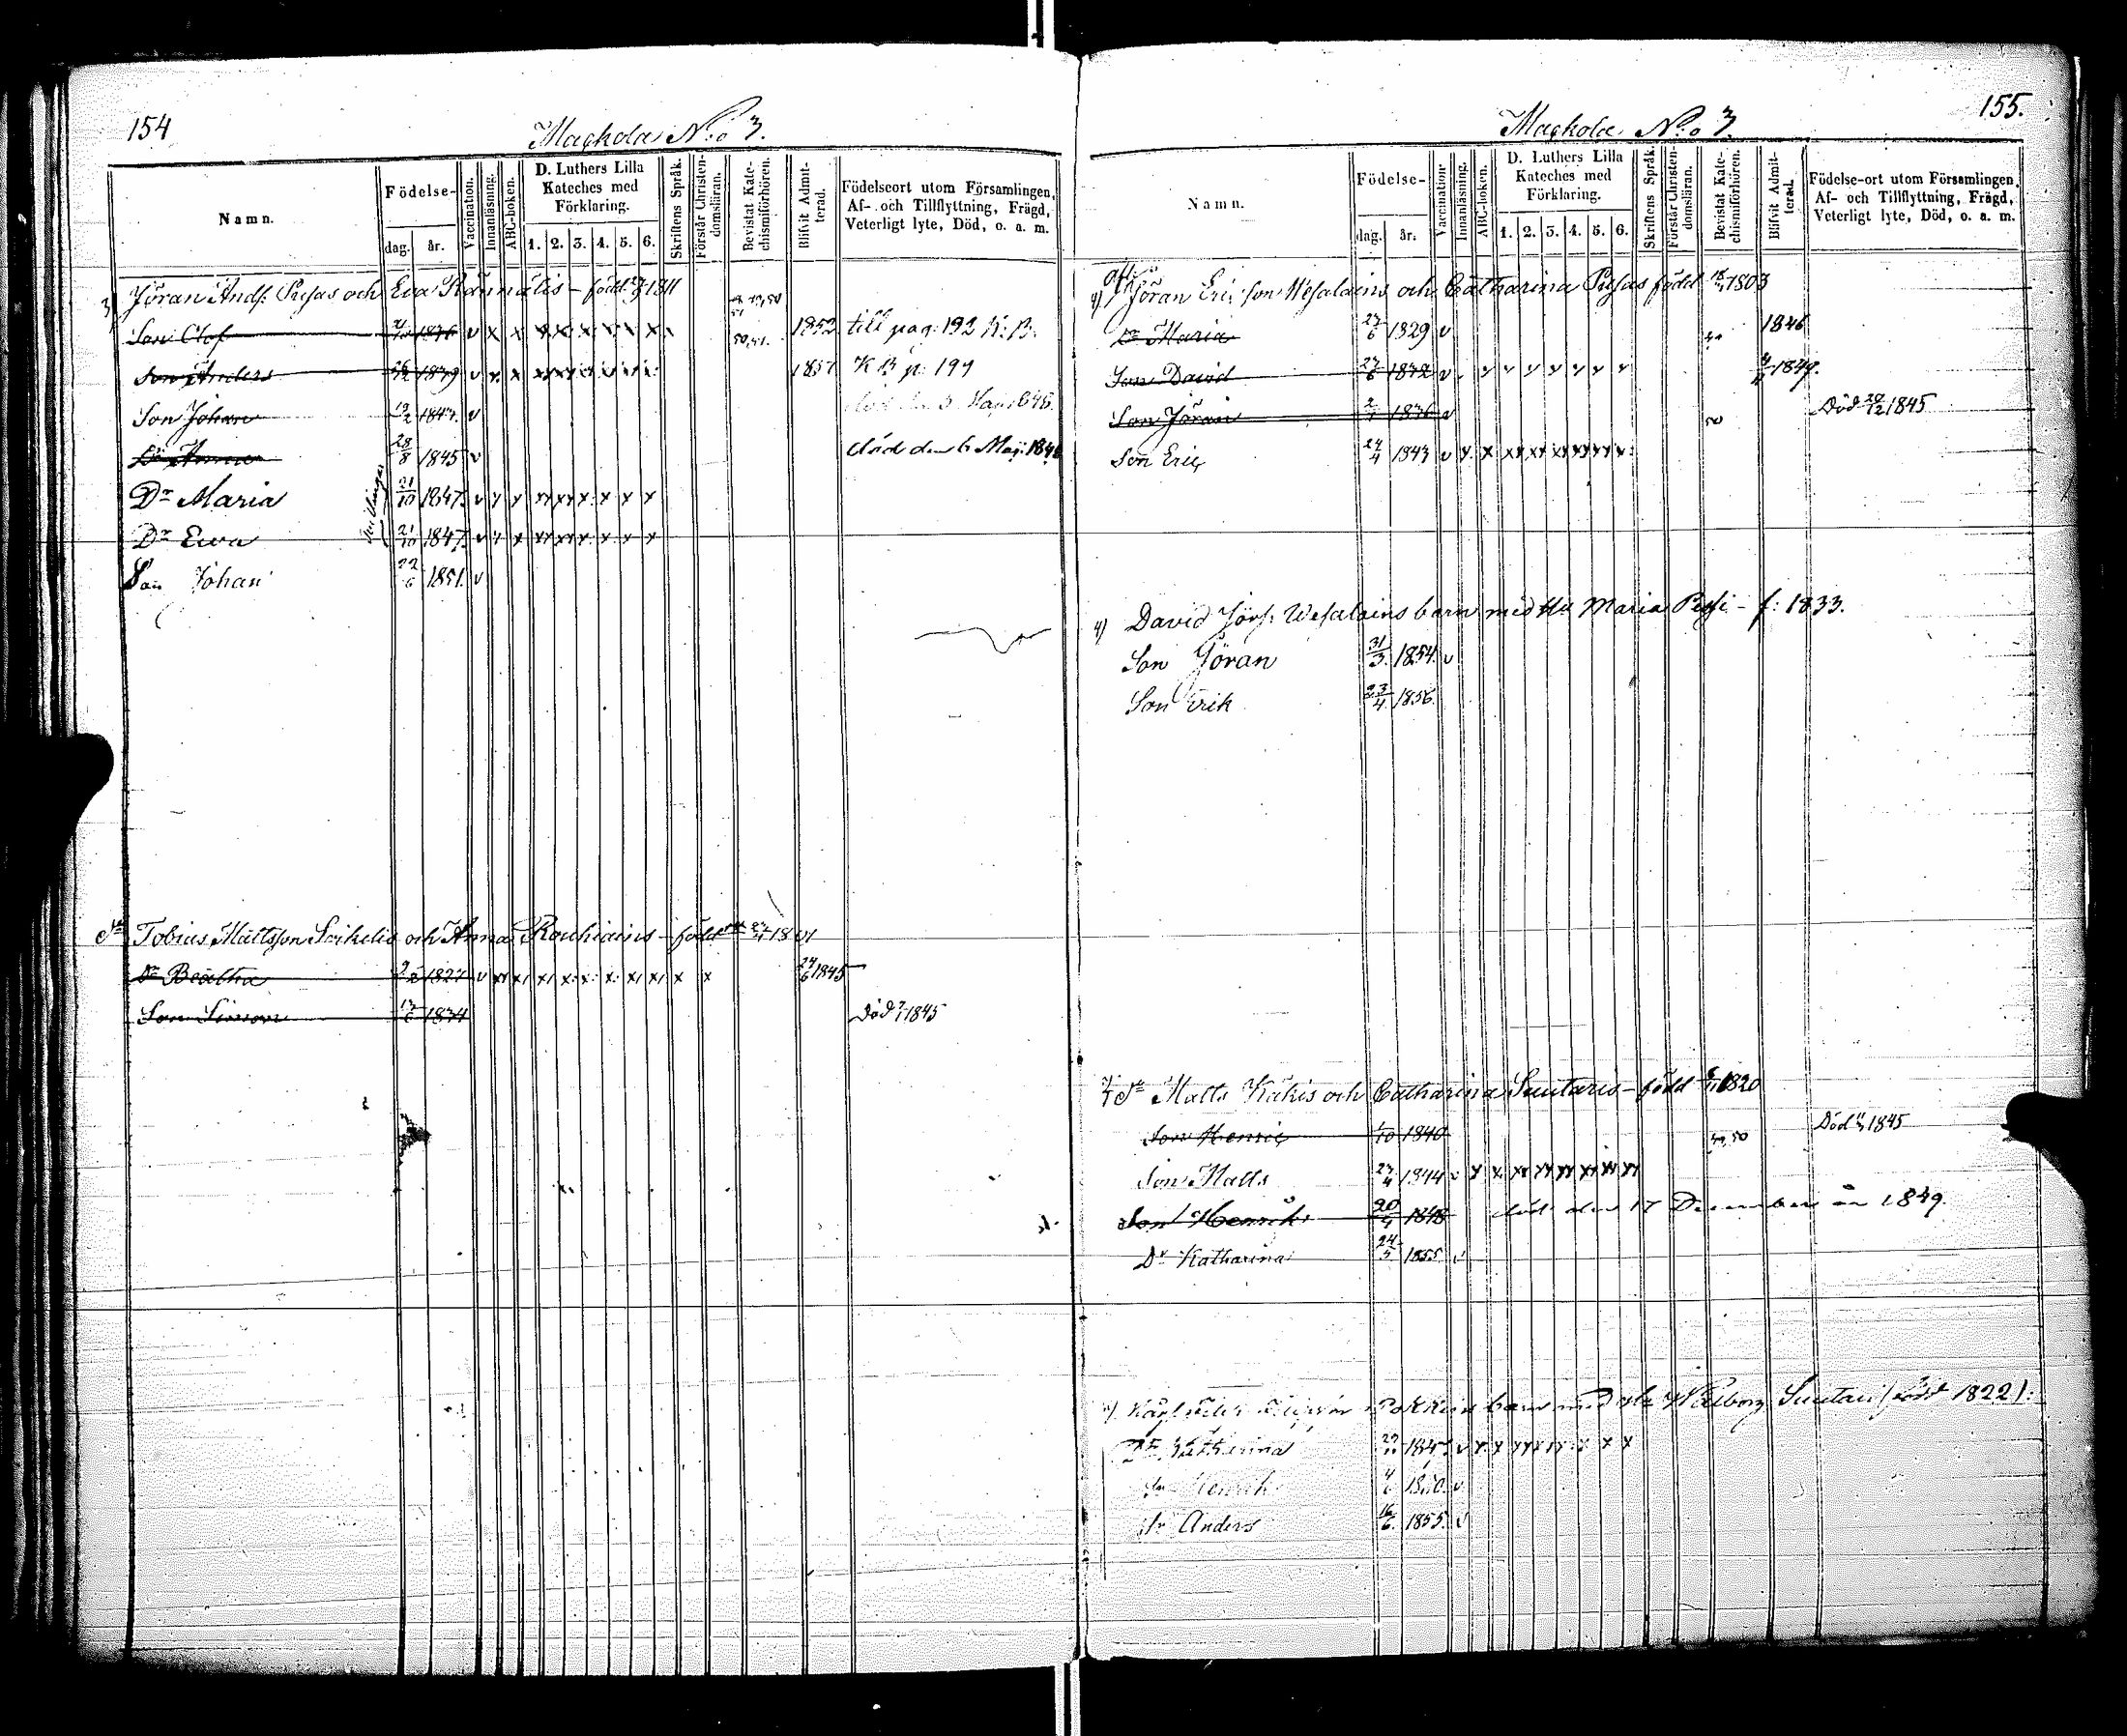 154
Mackola N:o 3.
Namn.
Födelse-
dag.
år.
Vaccination.
Innanläsning.
ABC-boken.
D. Luthers Lilla
Kateches med
Förklaring.
1. 2. 3. 4. 5. 6.
Skriftens Språk.
Förstår Christen-
domsläran.
Bevistat Kate-
chismiförhören.
Blifvit Admit-
terad.
Födelseort utom Församlingen,
Af- och Tillflyttning, Frägd,
Veterligt lyte, Död, o. a. m.
3) Jöran Ands: och Eva född 1811
Son Olof 1836 v x x 50,51. 1852 till pag: 192 K:B:
Son Anders 1839 v x x 1857 K B p: 194
Son Johan 19/2 1843. v
Dr Anna 28/8 1845 v död den 6 Maj: 1846
Dr Maria 21/10 1847. v x x xx xx x x x x
Dr Ewa 21/10 1847. v x x xx xx x x x x
Son Johan 22/6 1851. v
Tobias Mattsson och Anna Rouhiains född 1801
Dr Beatha 1827 v 24/6 1845
Son Simon 1834 Död 1845
155.
Mackola N:o 3.
Namn.
Födelse-
dag.
år.
Vaccination.
Innanläsning.
ABC-boken.
D. Luthers Lilla
Kateches med
Förklaring.
1. 2. 3. 4. 5. 6.
Skriftens Språk.
Förstår Christen-
domsläran.
Bevistat Kate-
chismiförhören.
Blifvit Admit-
terad.
Födelse-ort utom Församlingen,
Af- och Tillflyttning, Frägd,
Veterligt lyte, Död, o. a. m.
4) Jöran Ericsson Wesalains och Catharina född 1803
Dr Maria 27/6 1829 v 1846
Son David 27/6 1832 v 1849.
Son Jöran 1836 v Död 20/12 1845
Son Eric 24/4 1843 v x x xx xx xx xx xx x
4) David Jörs: Wesalains barn med Hu Maria f: 1833.
Son Jöran 31/3. 1854. v
Son Erik 23/4. 1856.
Matts Käkis och Catharina Suutaris född 1820
Son Henric 1/10 1840 50 Död 1845
Son Matts 27/4 1844 v x x xx xx xx xx xx xx
Son Henrik 20/4 1848 död den 17 December år 1849.
Dr Katharina 24/5 1855 v
barn med Walborg Suutari (född 1822):
Dr Katharina v x x
Sn Henrik 1850. v
Sn Anders 16/6. 1855. v